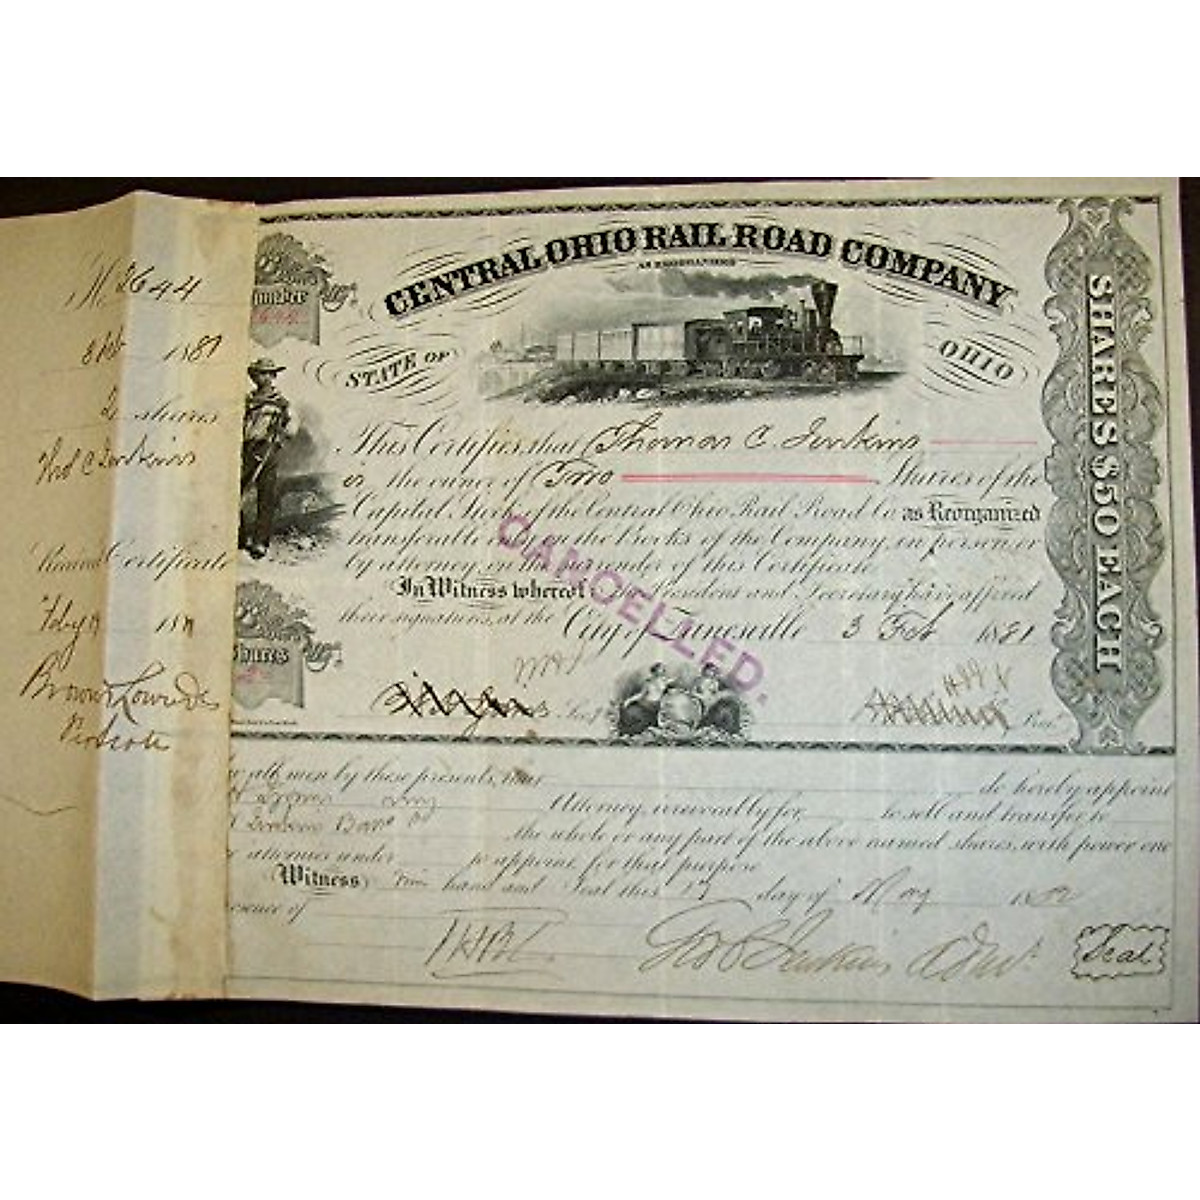 2644
1881
2 shares
Thos C Jenkins
Certificate
Brown & Lowndes
Number
CENTRAL OHIO RAIL ROAD COMPANY
AS REORGANIZED
STATE OF OHIO
SHARES $50 EACH
This Certifies that Thomas C. Jenkins
is the owner of Two Shares of the
Capital Stock of the Central Ohio Rail Road Co as Reorganized
transferable only on the Books of the Company, in person or
by attorney, on the surrender of this Certificate
In Witness whereof, the President and Secretary have affixed
their signatures, at the City of Zanesville 3 Feb 1881
CANCELLED.
Shares
Sec.y
Pres.t
all men by these presents, that do hereby appoint
Attorney, irrevocably for, to sell and transfer to
the whole or any part of the above named shares, with power one
attornies under to appoint, for that purpose
Witness hand and Seal this day of May
of
Jenkins
Seal